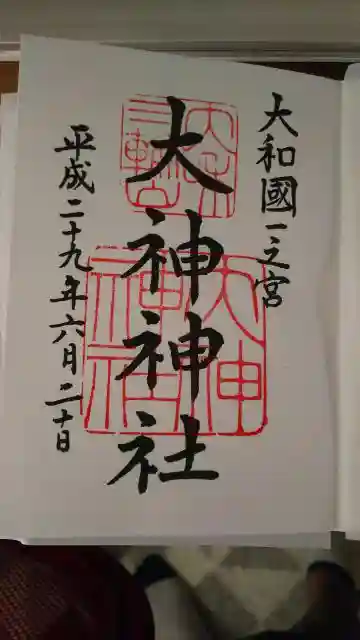 大和國一之宮
大神神社
平成二十九年六月二十日
大神神社